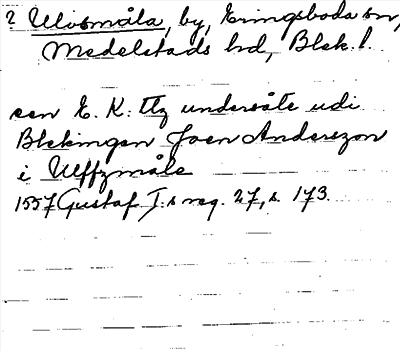 ? Ulvsmåla, by, Eringsboda sn,
Medelstads hd, Blek. l.
een E. K. Mtz undersåte udi
Blekingen Joen Anderzon
i Ulffzmåle
1557 Gustaf I:s reg. 27, s. 173.